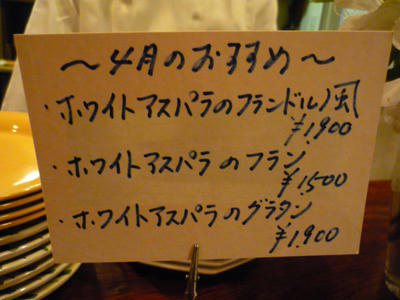 ～4月のおすすめ～
・ホワイトアスパラのフランドル風
¥1,900
・ホワイトアスパラのフラン
¥1,500
・ホワイトアスパラのグラタン
¥1,900